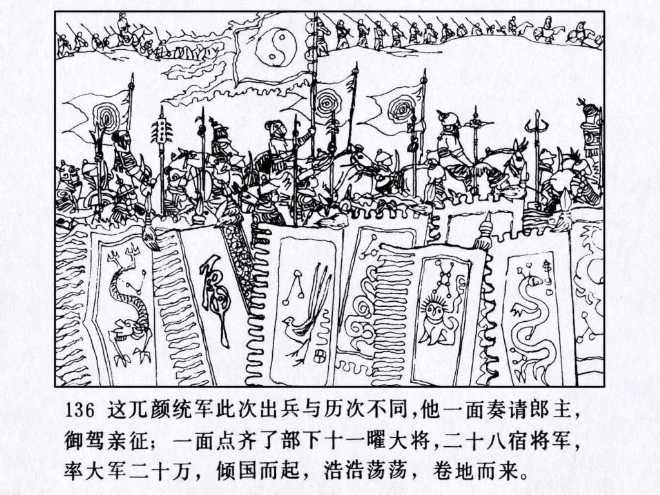 136 这兀颜统军此次出兵与历次不同,他一面奏请郎主,
御驾亲征；一面点齐了部下十一曜大将,二十八宿将军,
率大军二十万，倾国而起，浩浩荡荡，卷地而来。